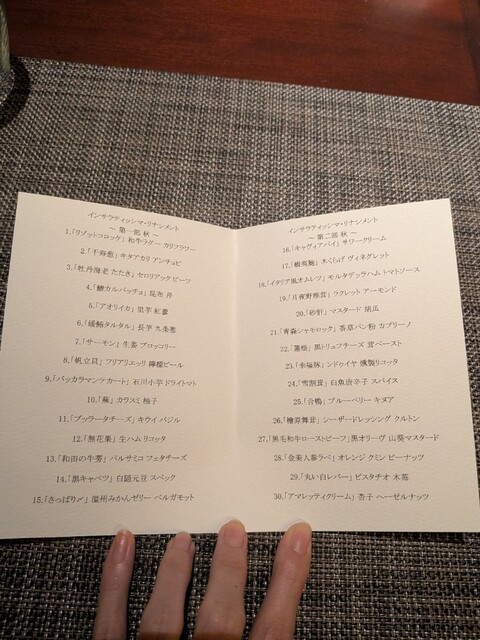 インサラティッシマ・リナシメント
～ 第一部 秋 ～
1.「リゾットコロッケ」 和牛ラグー カリフラワー
2.「千寿葱」 キタアカリ アンチョビ
3.「牡丹海老 たたき」 セロリアック ビーツ
4.「鰆カルパッチョ」 昆布 丹
5.「アオリイカ」 里芋 紅蓼
6.「鰹タルタル」 長芋 九条葱
7.「サーモン」 生姜 ブロッコリー
8.「帆立貝」 フリアリエッリ 檸檬ピール
9.「バッカラマンテカート」 石川小芋 ドライトマト
10.「蕪」 カラスミ 柚子
11.「ブッラータチーズ」 キウイ バジル
12.「無花果」 生ハム リコッタ
13.「和田の牛蒡」 バルサミコ フェタチーズ
14.「黒キャベツ」 白隠元豆 スペック
15.「さっぱり〆」 温州みかんゼリー ベルガモット
インサラティッシマ・リナシメント
～ 第二部 秋 ～
16.「キャヴィアパイ」 サワークリーム
17.「 」 木くらげ ヴィネグレット
18.「イタリア風オムレツ」 モルタデッラハム トマトソース
19.「月夜野椎茸」 ラクレット アーモンド
20.「砂肝」 マスタード 胡瓜
21.「青森シャモロック」 香草パン粉 カプリーノ
22.「蓮根」 黒トリュフチーズ 茸ペースト
23.「幸福豚」 ンドゥイヤ 燻製リコッタ
24.「雪割茸」 白魚唐辛子 スパイス
25.「合鴨」 ブルーベリー キヌア
26.「檜原舞茸」 シーザードレッシング クルトン
27.「黒毛和牛ローストビーフ」 黒オリーヴ 山葵マスタード
28.「金美人参ラペ」 オレンジ クミン ピーナッツ
29.「丸い白レバー」 ピスタチオ 木苺
30.「アマレッティクリーム」 杏子 ヘーゼルナッツ